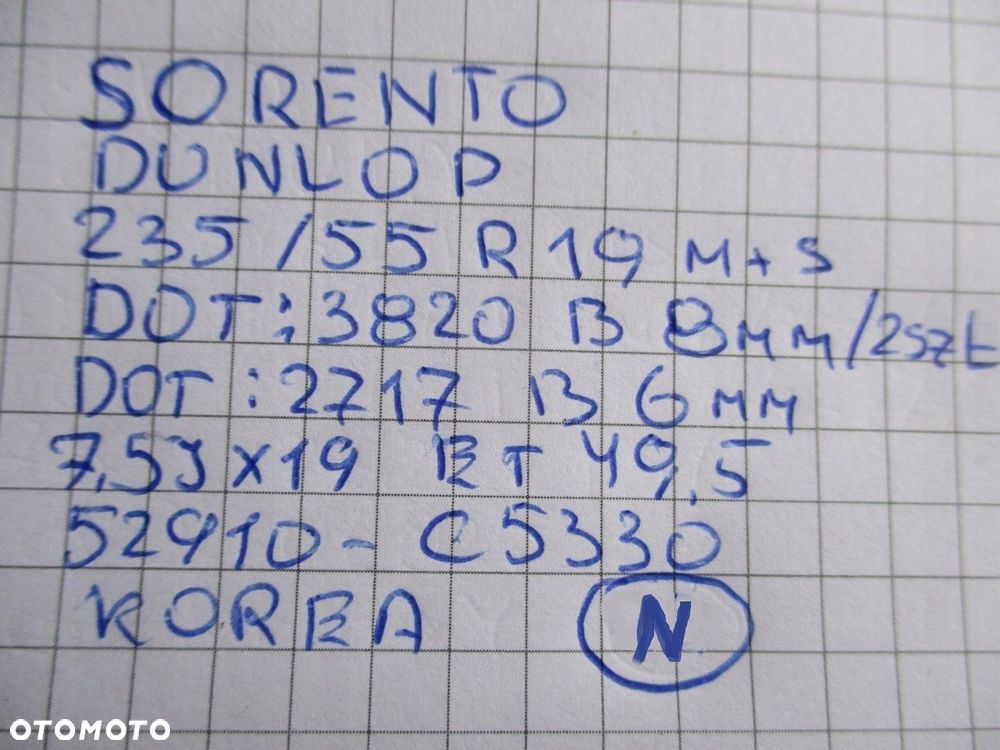 SORENTO
DUNLOP
235/55 R 19 M+S
DOT:3820 B 8mm/2szt
DOT:2717 B 6mm
7,5J x 19 ET 49,5
52910-C5330
KOREA N
OTOMOTO